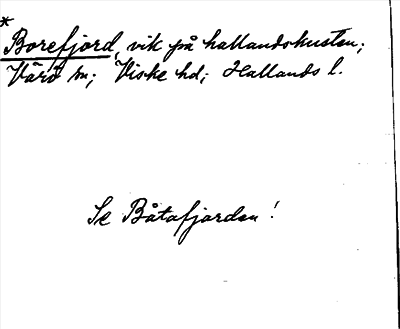 *
Borefjord, vik på hallandskusten;
Värö sn; Viske hd; Hallands l.
Se Båtafjorden!